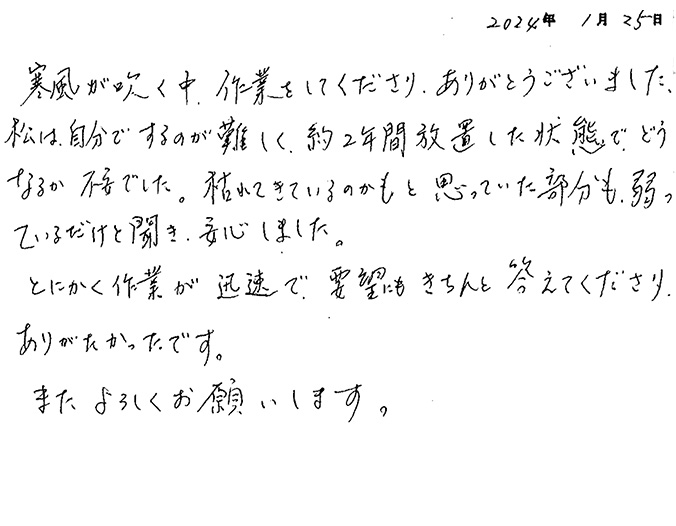 2024年 1月 25日
寒風が吹く中、作業をしてくださり、ありがとうございました、
松は、自分でするのが難しく、約2年間放置した状態で、どう
なるか 不安でした。枯れてきているのかもと思っていた部分も、弱っ
ているだけと聞き、安心しました。
とにかく作業が 迅速で、要望にもきちんと答えてくださり、
ありがたかったです。
また よろしくお願いします。